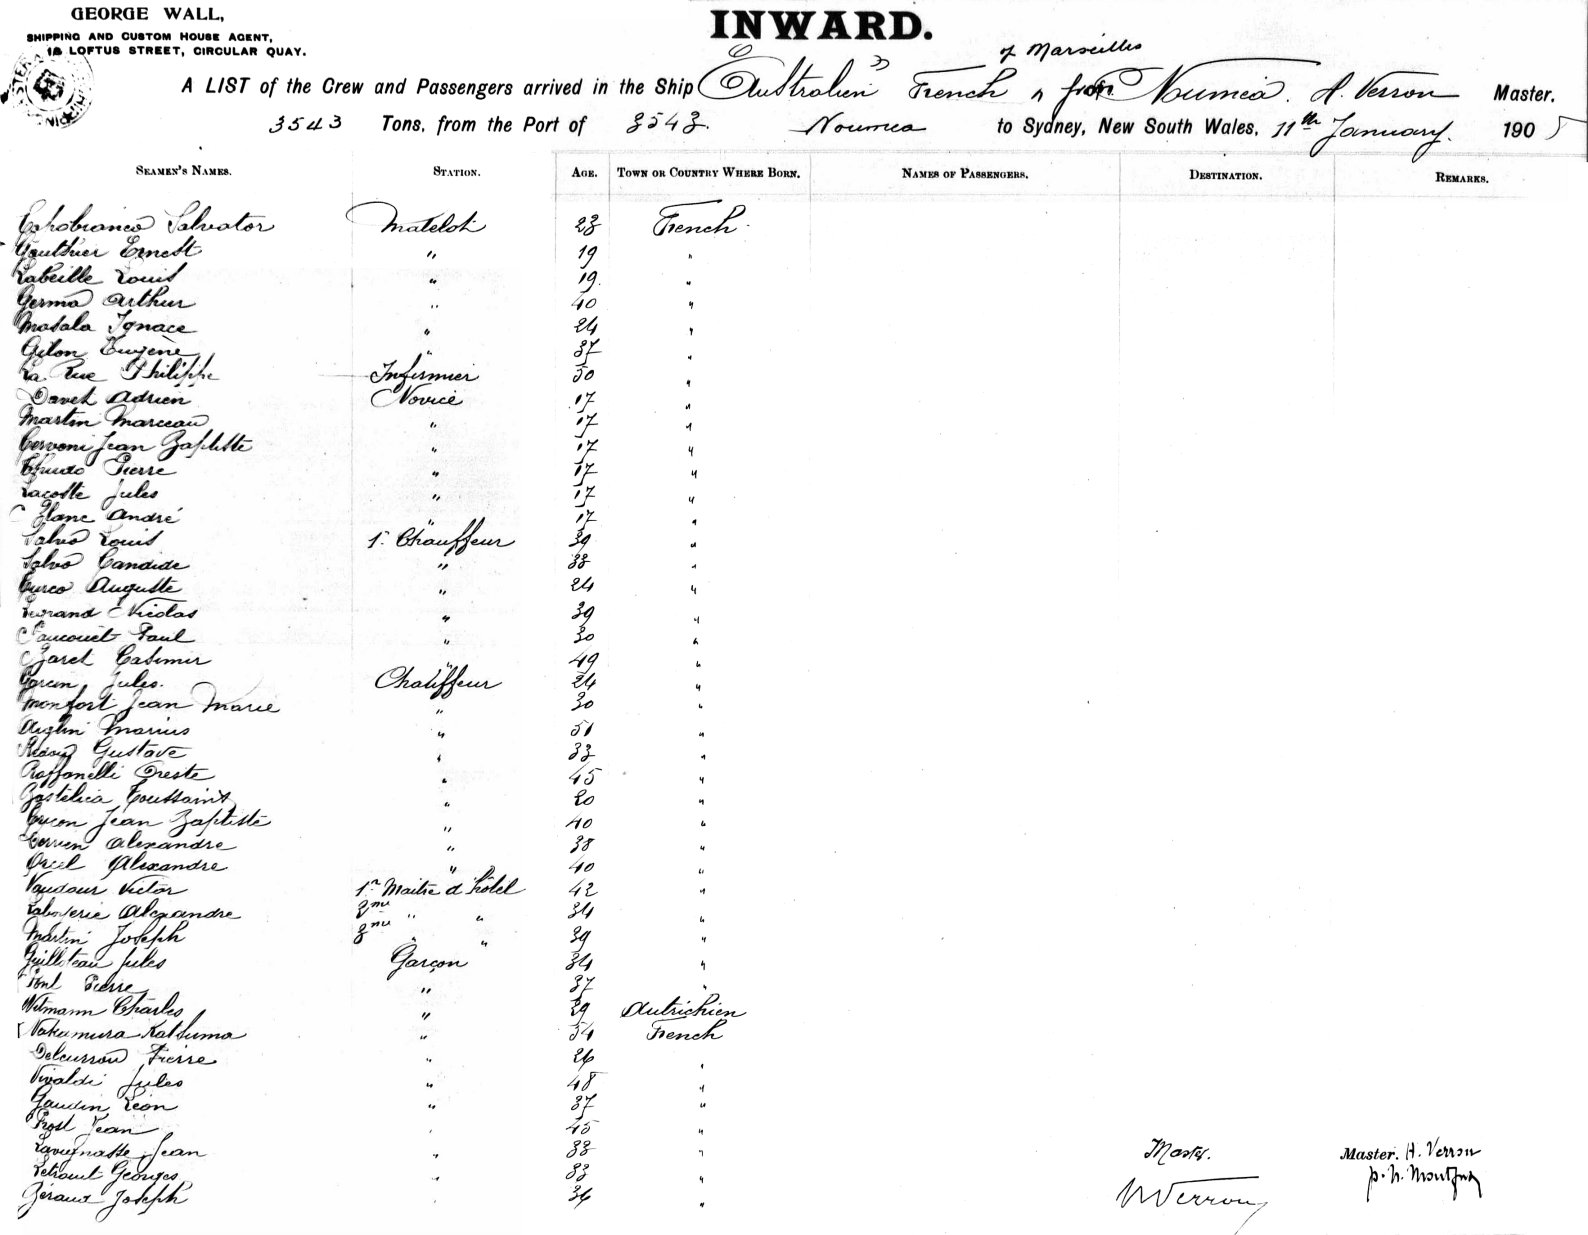 GEORGE WALL,
SHIPPING AND CUSTOM HOUSE AGENT,
LOFTUS STREET, CIRCULAR QUAY.
INWARD.
of Marseilles
A LIST of the Crew and Passengers arrived in the Ship Australien French from Noumea. A. Verron Master.
3543 Tons, from the Port of 3543. Noumea to Sydney, New South Wales, 11th January. 1905
SEAMEN'S NAMES. STATION. AGE. TOWN OR COUNTRY WHERE BORN. NAMES OF PASSENGERS. DESTINATION. REMARKS.
Salvator Matelot 23 French
Gauthier Ernest " 19 "
Labeille Louis " 19 "
Germa Arthur " 40 "
Masala Ignace " 24 "
Gilon Eugène " 37 "
La Rue Philippe Infirmier 50 "
Davet Adrien Novice 17 "
Martin Marceau " 17 "
Cervoni Jean Baptiste " 17 "
Pierre " 17 "
Lacoste Jules " 17 "
Blanc André " 17 "
Salvo Louis 1r Chauffeur 39 "
Salvo Candide " 38 "
Curco Auguste " 24 "
Nicolas " 39 "
Faucouet Paul " 30 "
Baret Casimir " 49 "
Garcin Jules. Chauffeur 24 "
Monfort Jean Marie " 30 "
Marius " 51 "
Gustave " 33 "
Raffanelli Oreste " 45 "
Bastelica Toussaint " 20 "
Jean Baptiste " 40 "
Alexandre " 38 "
Orcel Alexandre " 40 "
Vaudour Victor 1r Maitre d'hôtel 42 "
Laboyerie Alexandre 2me " " 34 "
Martin Joseph 3me " " 39 "
Guilloteau Jules Garçon 34 "
Pierre " 37 "
Witmann Charles " 39 Autrichien
Nakamura Katsuma " 54 French
Delcurrou Pierre " 26 "
Vivaldi Jules " 48 "
Gaudin Léon " 37 "
Prost Jean 45 "
Lavignasse Jean " 33 "
Georges " 33 "
Béraud Joseph " 36 "
Master. Master. A. Verron
Verron